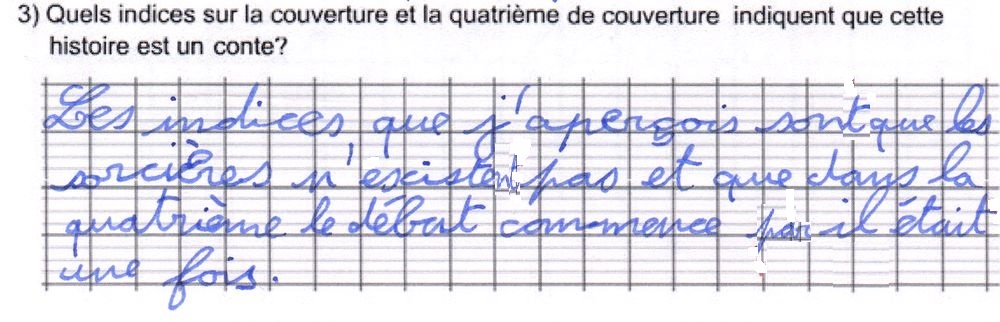 3) Quels indices sur la couverture et la quatrième de couverture indiquent que cette
histoire est un conte?
Les indices que j'aperçois sont que les
sorcières n'existent pas et que dans la
quatrième le débat commence par il était
une fois.